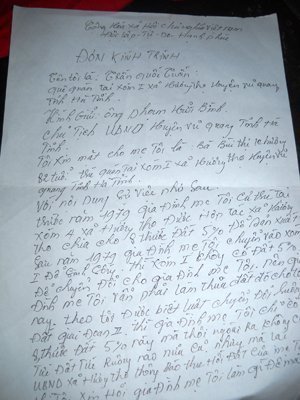 Cộng Hoà Xã Hội chủ nghĩa Việt Nam
Độc lập - Tự - Do - Hạnh phúc
ĐƠN KÍNH TRÌNH
Tên tôi là: Trần Quốc Tuấn:
quê quán tại xóm I xã Hương thọ Huyện vũ quang
Tỉnh Hà Tĩnh.
Kính Gửi: ông Phạm Hữu Bình
chủ Tịch UBND Huyện vũ quang Tỉnh Hà
Tĩnh.
Tôi xin mặt cho mẹ Tôi là Bà Bùi thị
82 tuổi quán Tại xóm I xã Hương thọ Huyện vũ
quang Tỉnh Hà Tĩnh
Với nội Dung sự việc như Sau.
trước năm 1979 gia Đình mẹ Tôi cư trú tại
xóm 4 xã Hương thọ Được Hợp tác xã Hương
thọ chia cho 8 thước Đất 5% Để sản xuất
Sau năm 1979 gia Đình mẹ Tôi chuyển vào xóm
I Để sinh sống thì xóm I không có Đất 5%
Để chuyển Đổi cho gia Đình mẹ Tôi. Nên gia
Đình mẹ Tôi vẫn phải làm thửa đất đó cho Đến
nay. theo tôi Được biết luật chuyển đổi ruộng
Đất giai Đoạn II thì gia Đình mẹ Tôi chỉ có
8 thước Đất 5% này mà thôi ngoài ra không có
Đất ruộng nào nữa cả nhưng mà lại
UBND xã Hương thọ thông báo thu Hồi Đất của mẹ
Tôi xin Hỏi gia Đình mẹ Tôi làm gì Để mà